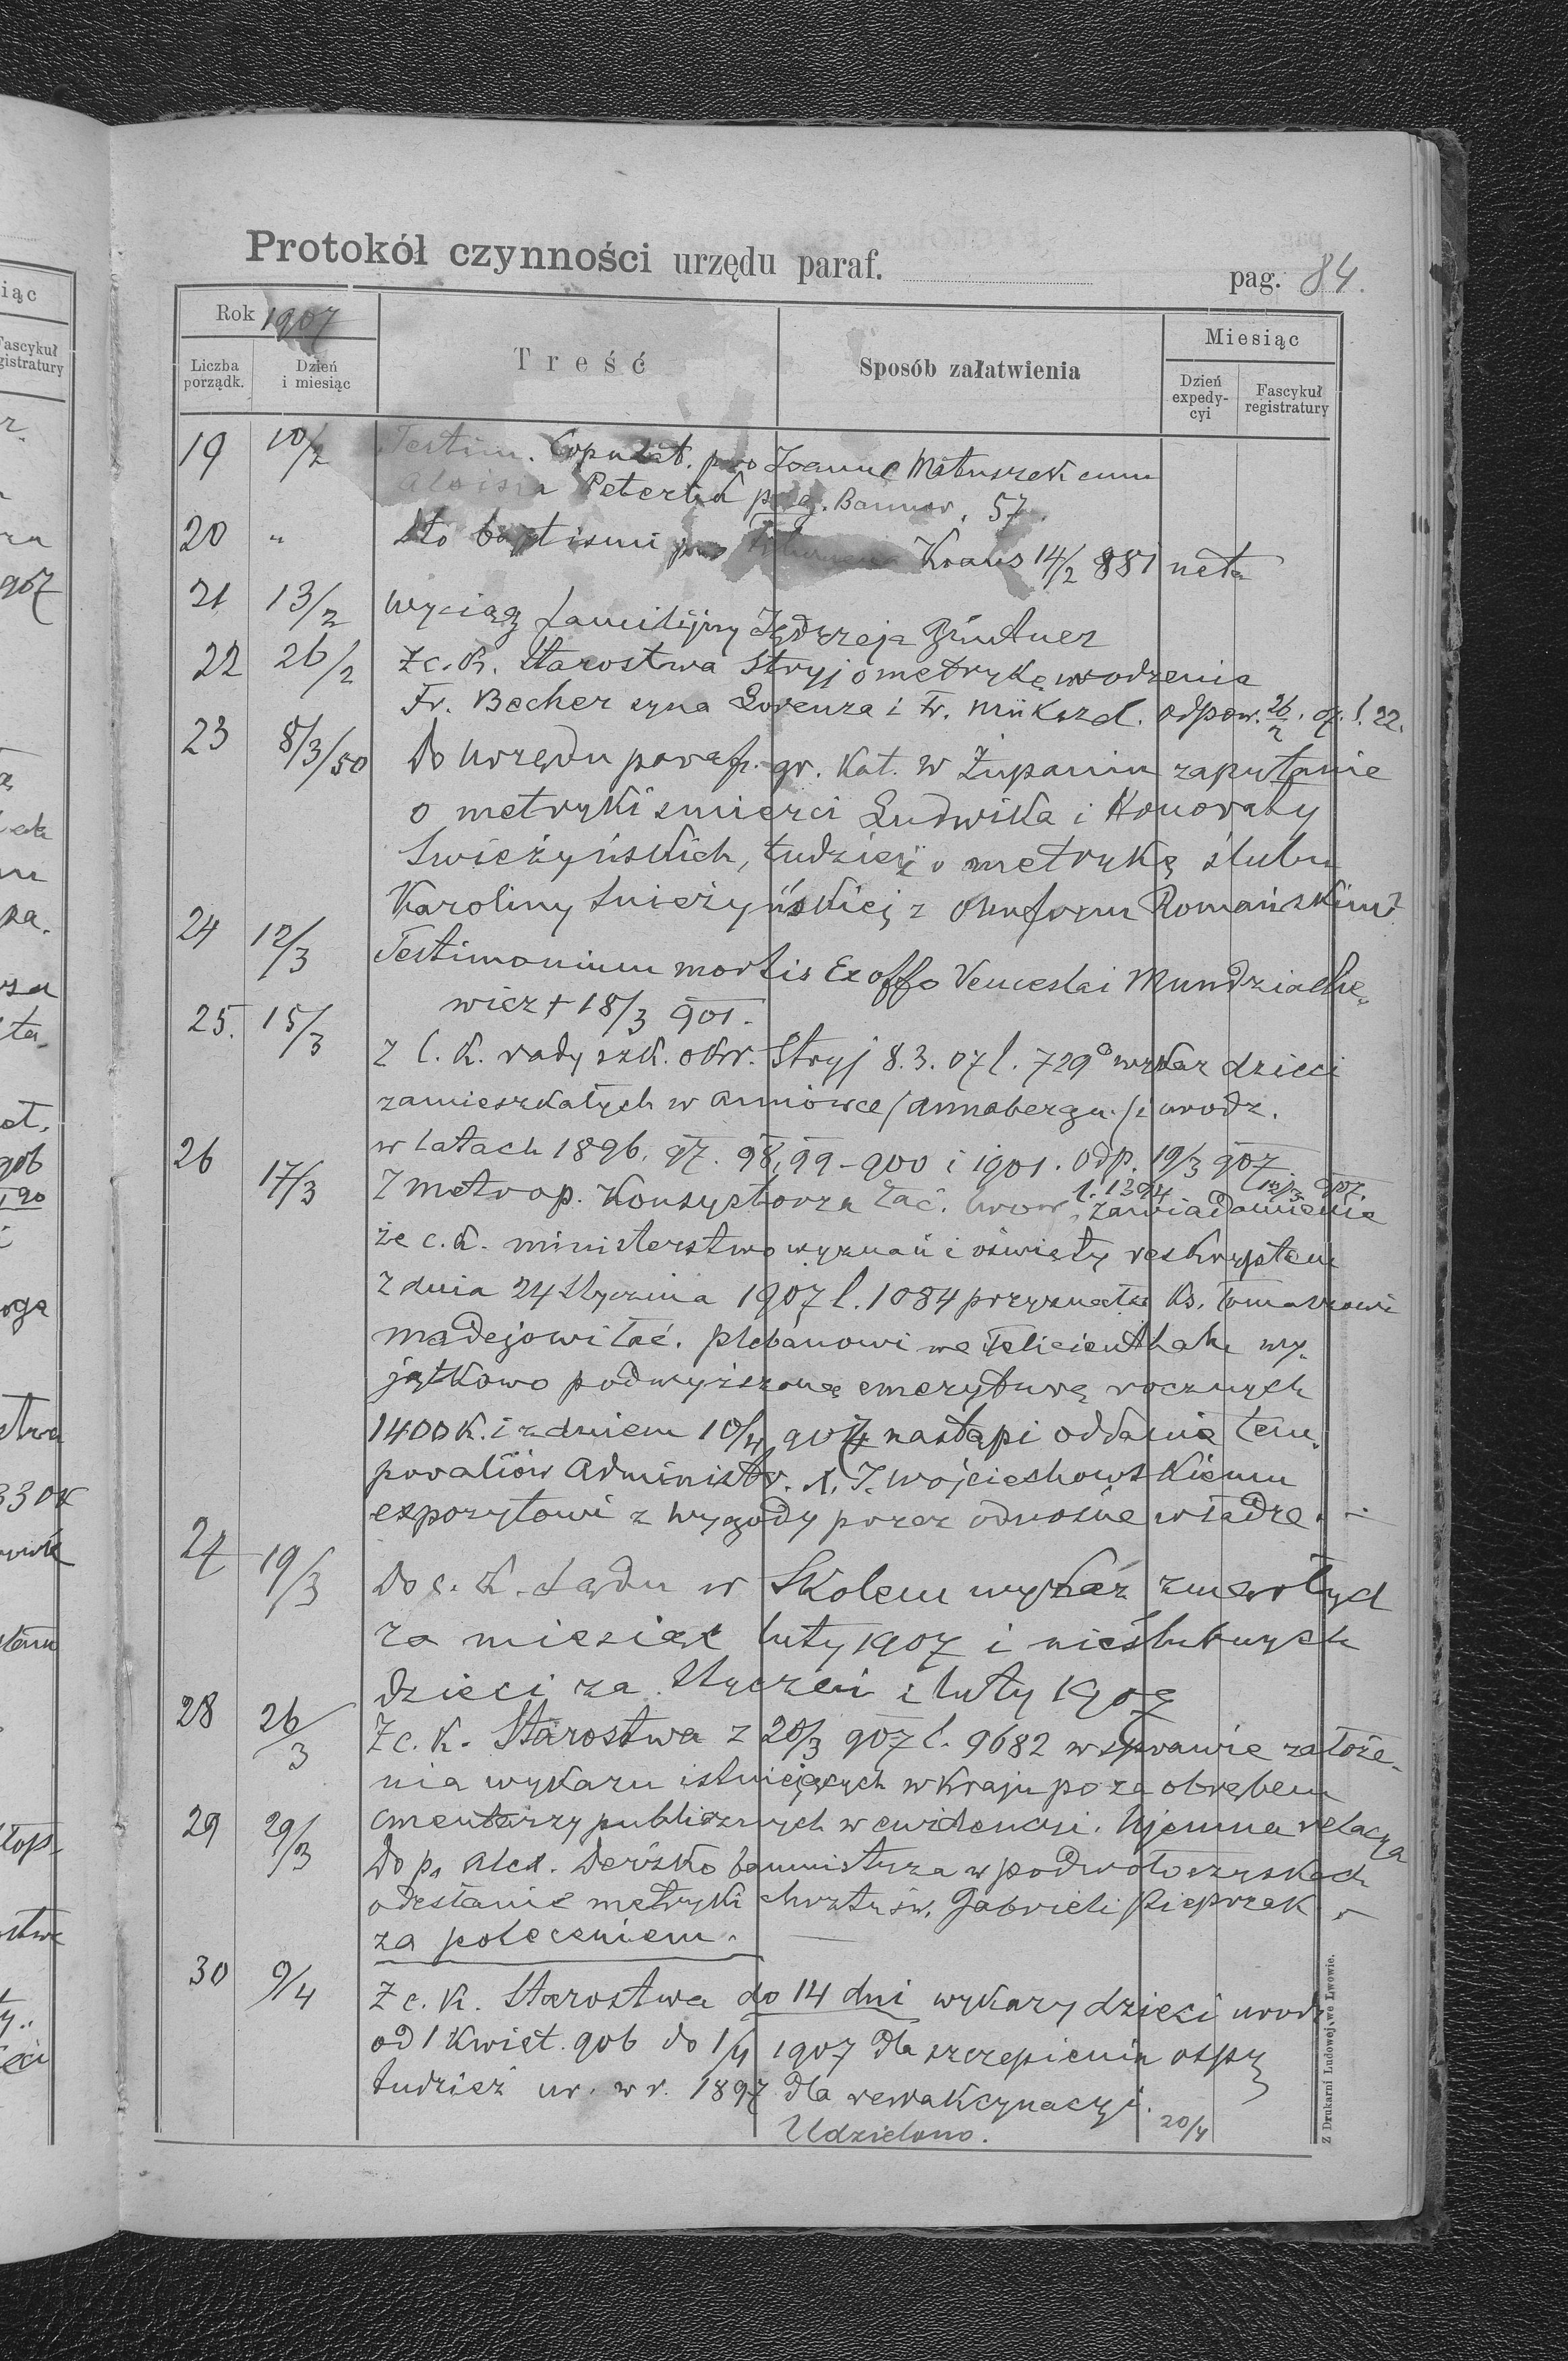 Protokół czynności urzędu paraf. pag. 84.
Rok 1907
Liczba porządk.
Dzień i miesiąc
Treść
Sposób załatwienia
Miesiąc
Dzień expedycyi
Fascykuł registratury
19 10/2 Testim. Copulat. pro Joanne Matuszek cum
Aloisia Peterka 57.
20 " dto baptismi pro Kraus 14/2 881 nata
21 13/2 Wyciąg familijny Jędrzeja Güntner
22 26/2 Z c. k. Starostwa Stryj o metrykę urodzenia
Fr. Becher syna Lorenza i Fr. odpow. 26/2 07. l. 22.
23 8/3/50 Do Urzędu paraf. gr. kat. w Żupaniu zapytanie
o metryki smierci Ludwika i Honoraty
Swieżyńskich, tudzież o metrykę ślubu
Karoliny Snieżyńskiej z Onufrym Romańskim
24 12/3 Testimonium mortis Ex offo Venceslai Mundziache-
wicz + 18/3 901.
25. 15/3 Z C. K. rady szk. okr. Stryj 8.3.07 l. 729 o wykaz dzieci
zamieszkałych w Annówce /Annabergu/ i urodz.
w latach 1896. 97. 98, 99 - 900 i 1901. Odp. 19/3 907
26 17/3 Z metrop. Konsystorza łać. Lwow. l. 1394 12/3 907. zawiadomienie
że c. k. ministerstwo wyznań i oświaty reskryptem
z dnia 24 Stycznia 1907 l. 1084 przyznało Ks. Tomaszowi
Madejowi łać. plebanowi we Felicienthalu wy-
jątkowo podwyższoną emeryturę rocznych
1400 K. i z dniem 10/4 907 nastąpi oddanie tem-
poraliów Administr. X. J. Wojciechowskiemu
expozytowi z Wygody przez odnośne władze. -
27 19/3 Do c. k. Sądu w Skolem wykaz zmarłych
za miesiąc luty 1907 i nieślubnych
dzieci za Styczeń i luty 1907
28 26/3 Z c. k. Starostwa z 20/3 907 l. 9682 w sprawie założe-
nia wykazu istniejących w kraju poza obrębem
cmentarzy publicznych w ewidencyi. Ujemna relacya
29 29/3 Do p. Alex. Derżko w Podwołoczyskach
odesłanie metryki chrztu św. Gabrieli Pieprzak
za poleceniem.
30 9/4 Z c. k. Starostwa do 14 dni wykazy dzieci urodz
od 1 Kwiet. 906 do 1/4 1907 dla szczepienia ospy
tudzież ur. w r. 1897 dla rewakcynacyi.
Udzielono. 20/4
Z Drukarni Ludowej, we Lwowie.